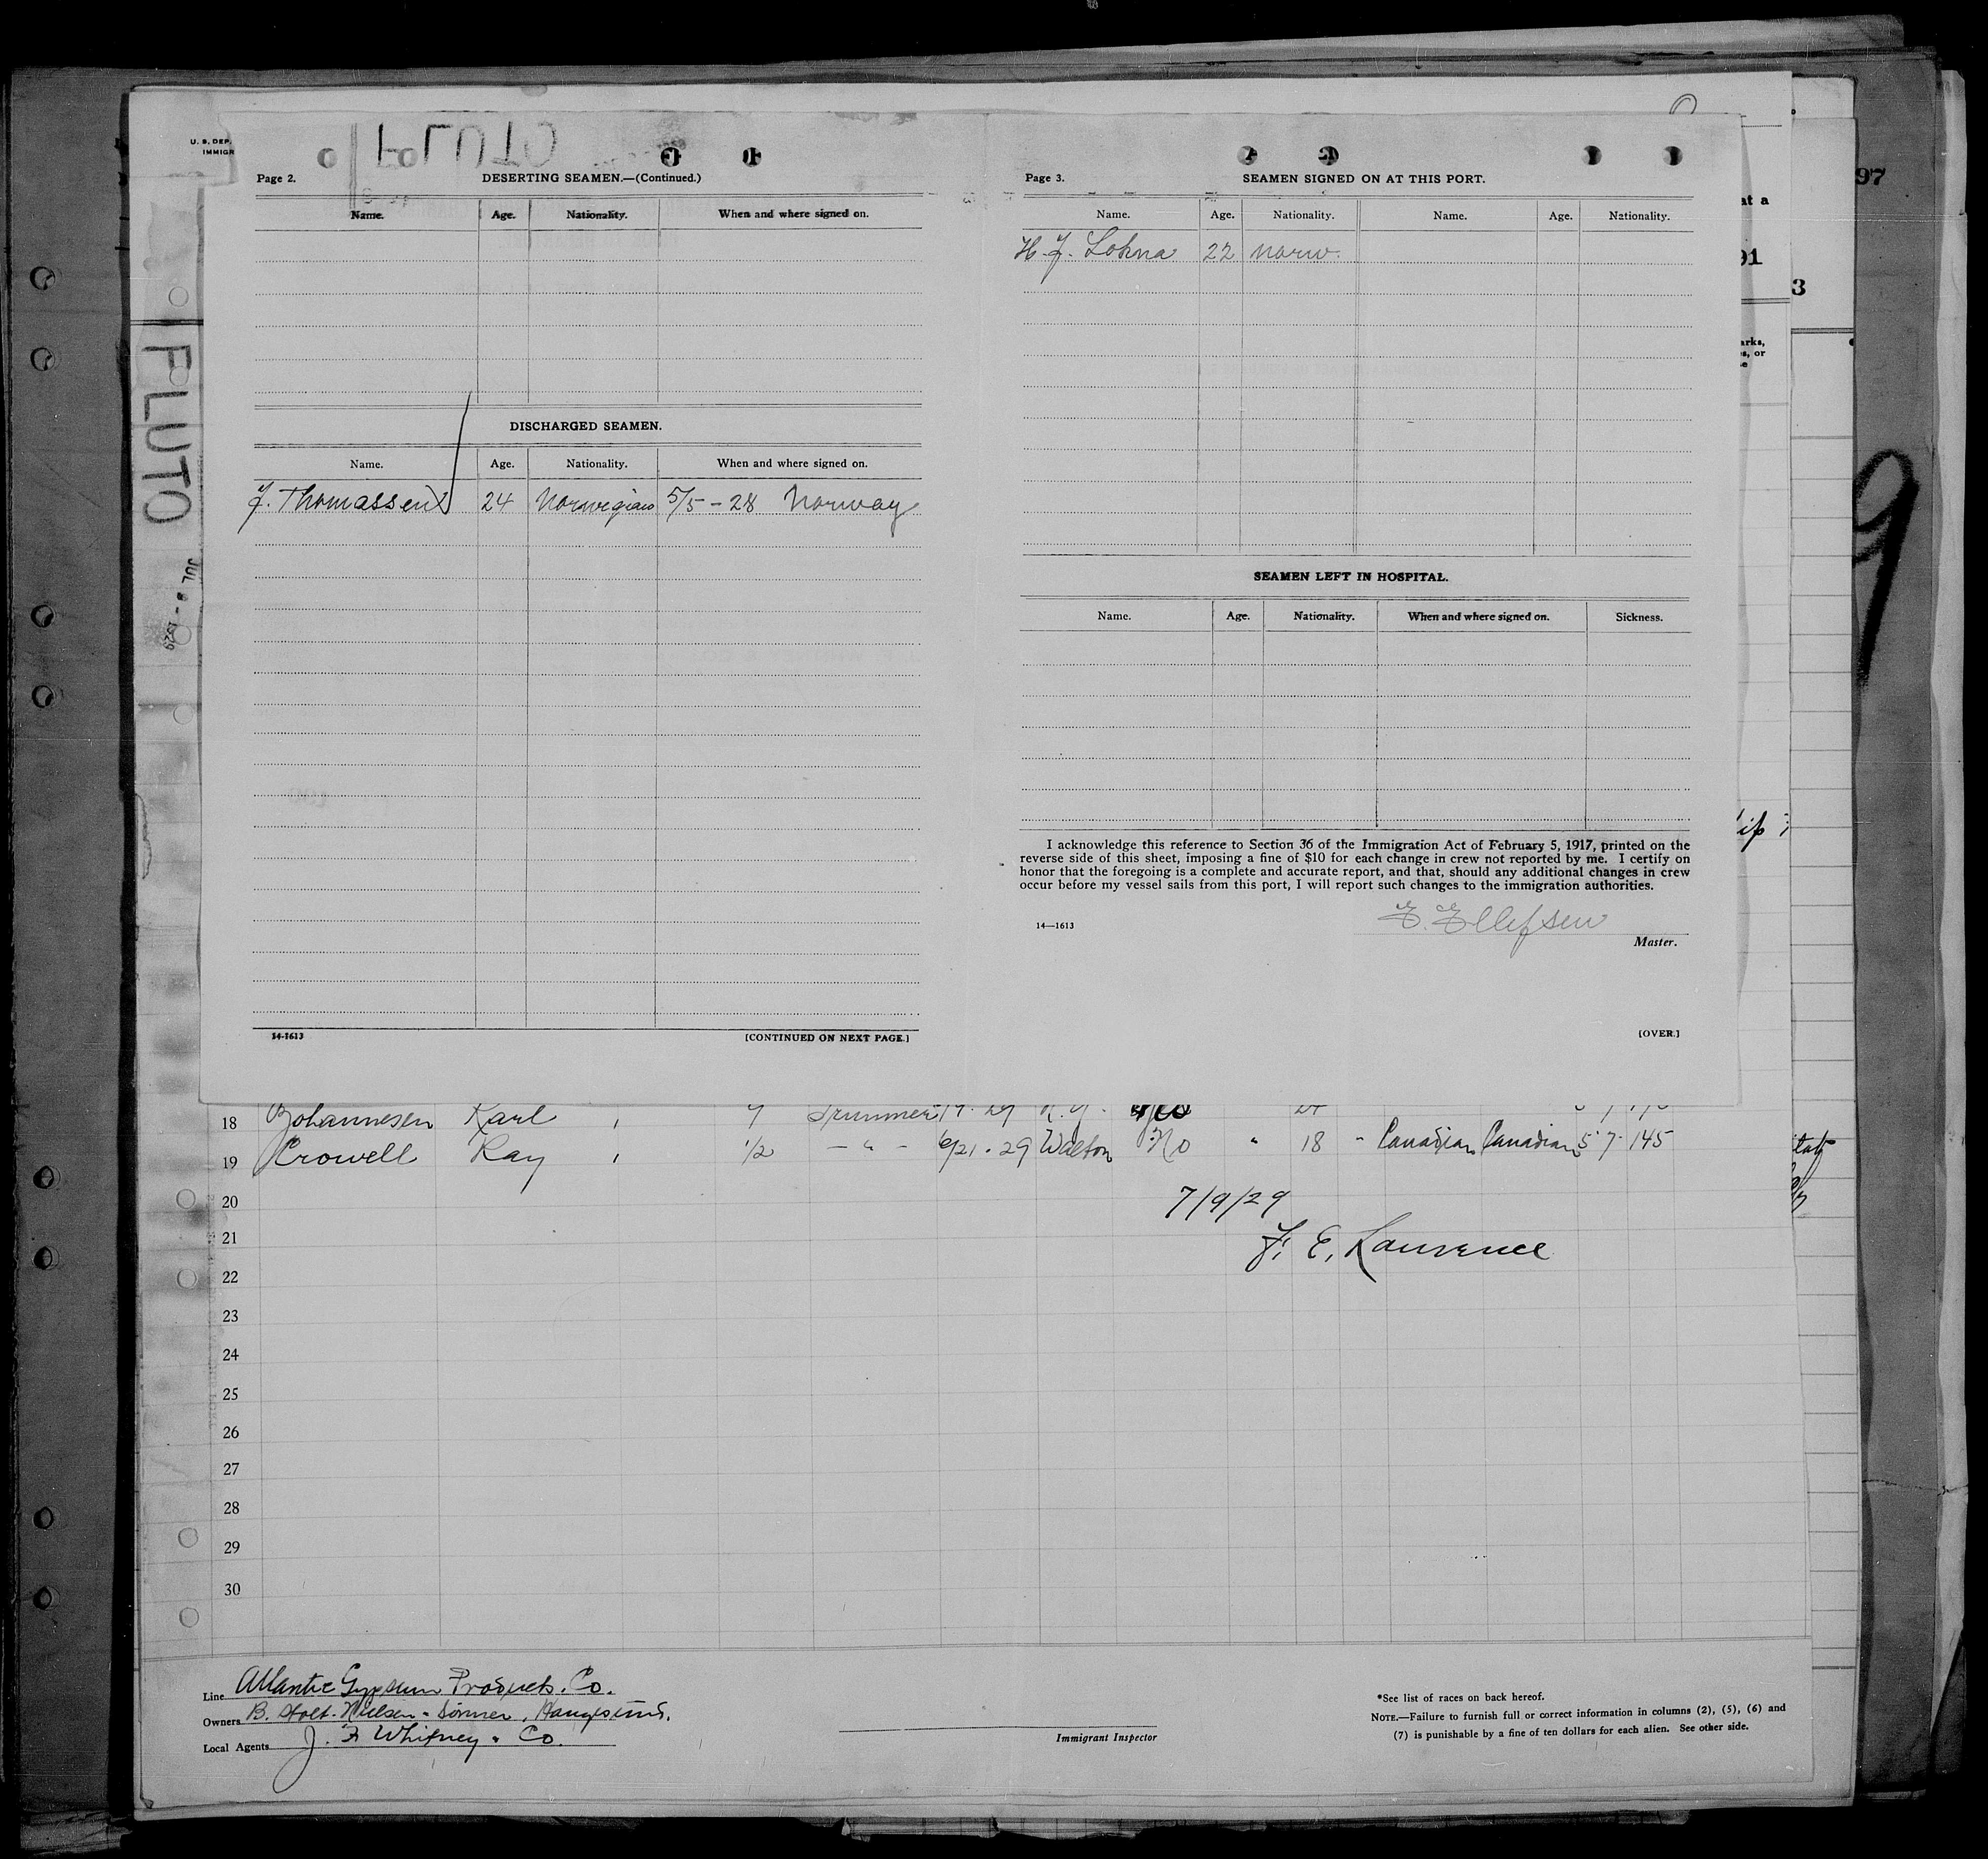 U. S. DEP.
IMMIGR
PLUTO
Page 2.
DESERTING SEAMEN.—(Continued.)
Name. Age. Nationality. When and where signed on.
DISCHARGED SEAMEN.
Name. Age. Nationality. When and where signed on.
J. Thomassen 24 Norwegian 5/5-28 Norway
14-1613
[CONTINUED ON NEXT PAGE.]
Page 3.
SEAMEN SIGNED ON AT THIS PORT.
Name. Age. Nationality. Name. Age. Nationality.
H. J. Lohna 22 Norw.
SEAMEN LEFT IN HOSPITAL.
Name. Age. Nationality. When and where signed on. Sickness.
I acknowledge this reference to Section 36 of the Immigration Act of February 5, 1917, printed on the
reverse side of this sheet, imposing a fine of $10 for each change in crew not reported by me. I certify on
honor that the foregoing is a complete and accurate report, and that, should any additional changes in crew
occur before my vessel sails from this port, I will report such changes to the immigration authorities.
E. Ellefsen
14—1613
Master.
[OVER.]
PLUTO
97
at a
91
3
arks,
s, or
e
9
18 Johannesen Karl
19 Crowell Ray 1/2 - " - 6/21-29 Walton No " 18 " Canadian Canadian 5 7 145
20
7/9/29
21
F. E. Lawrence
22
23
24
25
26
27
28
29
30
Line Atlantic Gypsum Products. Co.
Owners B. Stolt-Nielsen & Sønner, Haugesund.
Local Agents J. F. Whitney & Co.
Immigrant Inspector
*See list of races on back hereof.
NOTE.—Failure to furnish full or correct information in columns (2), (5), (6) and
(7) is punishable by a fine of ten dollars for each alien. See other side.